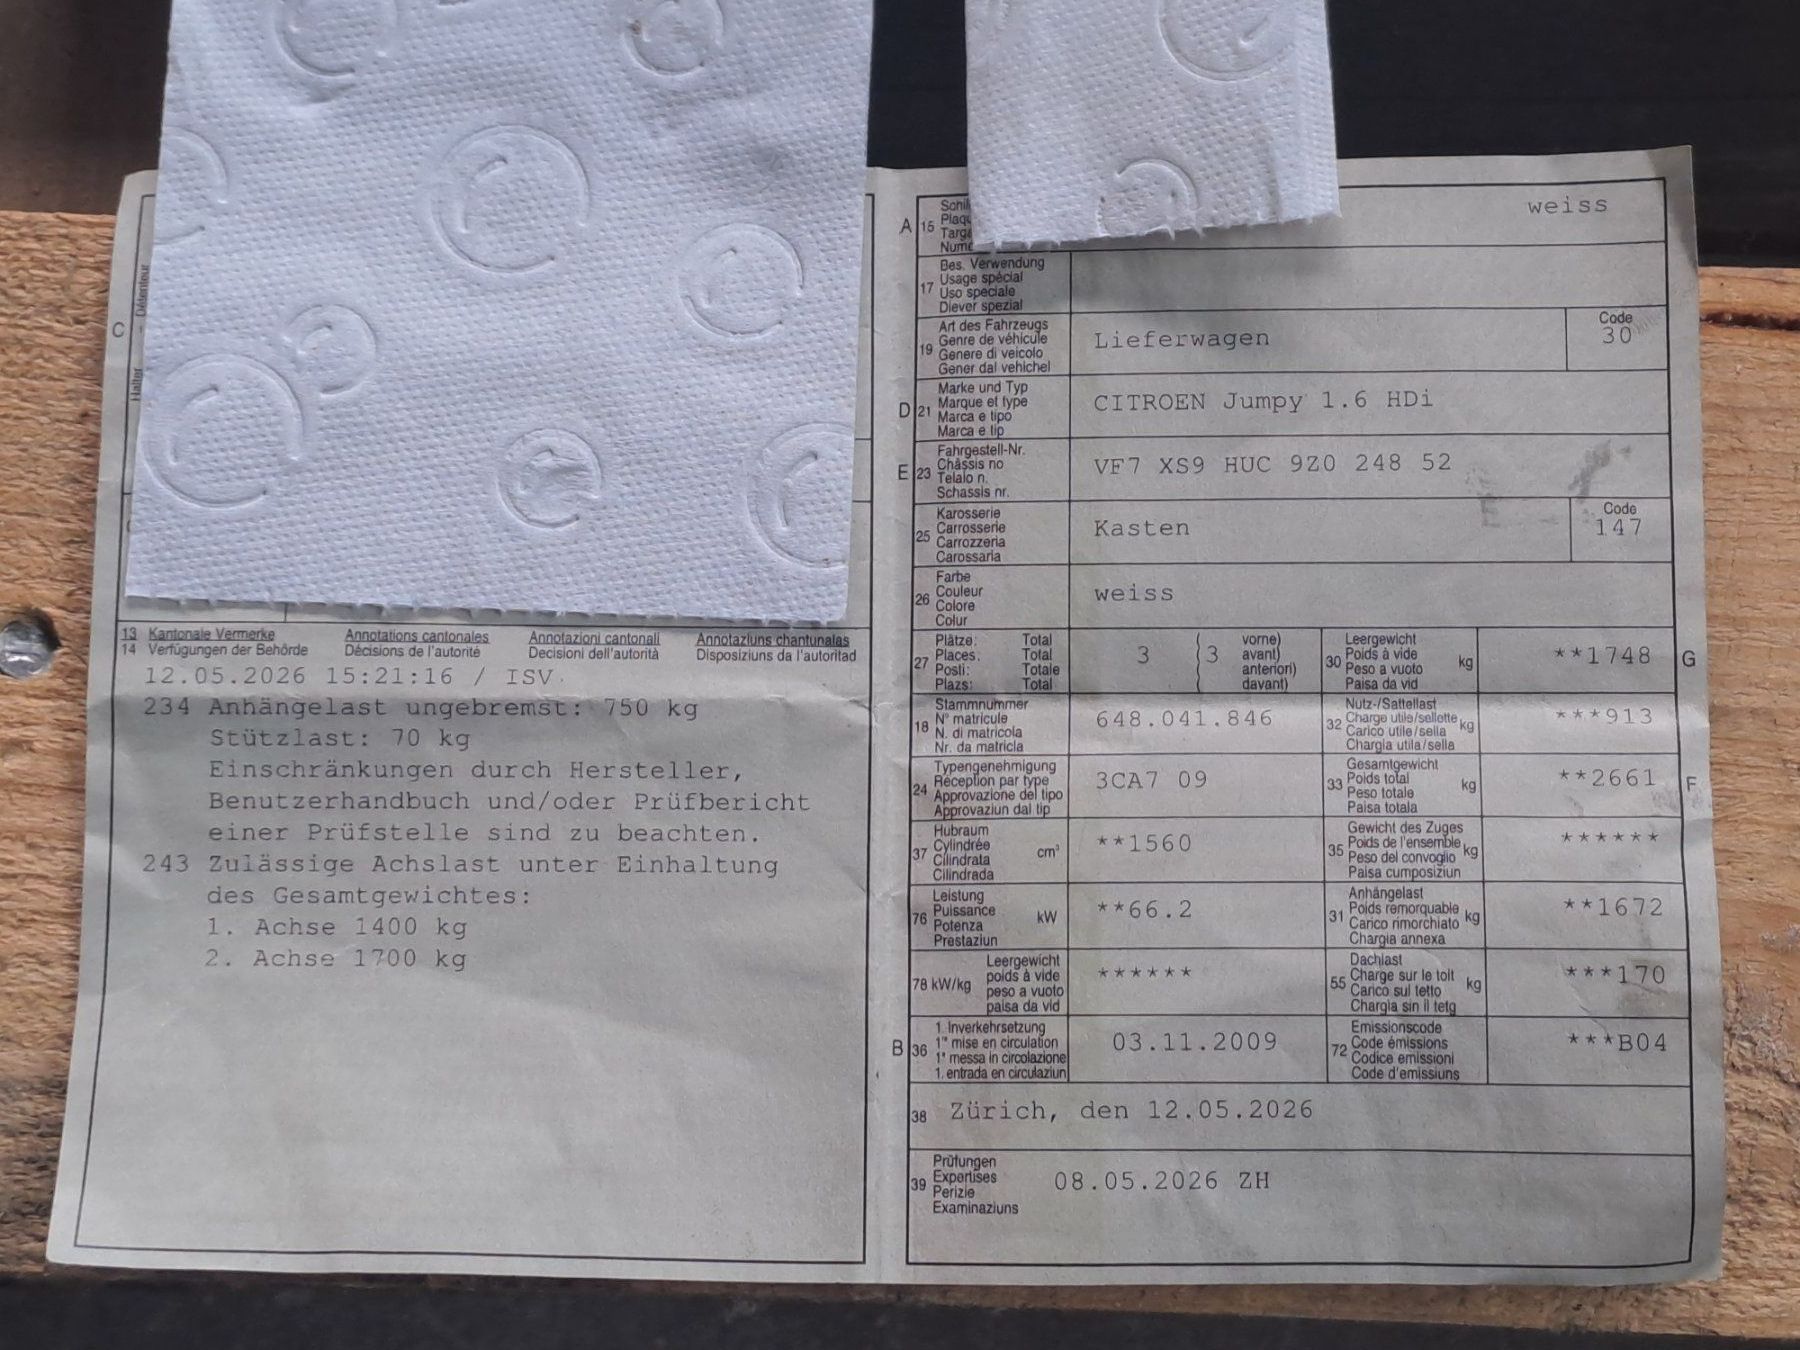 C
Halter - Détenteur
13 Kantonale Vermerke Annotations cantonales Annotazioni cantonali Annotaziuns chantunalas
14 Verfügungen der Behörde Décisions de l'autorité Decisioni dell'autorità Disposiziuns da l'autoritad
12.05.2026 15:21:16 / ISV
234 Anhängelast ungebremst: 750 kg
Stützlast: 70 kg
Einschränkungen durch Hersteller,
Benutzerhandbuch und/oder Prüfbericht
einer Prüfstelle sind zu beachten.
243 Zulässige Achslast unter Einhaltung
des Gesamtgewichtes:
1. Achse 1400 kg
2. Achse 1700 kg
A 15 weiss
17 Bes. Verwendung
Usage spécial
Uso speciale
Diever spezial
19 Art des Fahrzeugs
Genre de véhicule
Genere di veicolo
Gener dal vehichel
Lieferwagen
Code
30
D 21 Marke und Typ
Marque et type
Marca e tipo
Marca e tip
CITROEN Jumpy 1.6 HDi
E 23 Fahrgestell-Nr.
Châssis no
Telaio n.
Schassis nr.
VF7 XS9 HUC 9Z0 248 52
25 Karosserie
Carrosserie
Carrozzeria
Carossaria
Kasten
Code
147
26 Farbe
Couleur
Colore
Colur
weiss
27 Plätze: Total
Places: Total
Posti: Totale
Plazs: Total
3 (3 vorne)
avant)
anteriori)
davant)
30 Leergewicht
Poids à vide
Peso a vuoto
Paisa da vid
kg
**1748 G
18 Stammnummer
N° matricule
N. di matricola
Nr. da matricla
648.041.846
32 Nutz-/Sattellast
Charge utile/sellette
Carico utile/sella
Chargia utila/sella
kg
***913
24 Typengenehmigung
Réception par type
Approvazione del tipo
Approvaziun dal tip
3CA7 09
33 Gesamtgewicht
Poids total
Peso totale
Paisa totala
kg
**2661 F
37 Hubraum
Cylindrée
Cilindrata
Cilindrada
cm³
**1560
35 Gewicht des Zuges
Poids de l'ensemble
Peso del convoglio
Paisa cumposiziun
kg
******
76 Leistung
Puissance
Potenza
Prestaziun
kW
**66.2
31 Anhängelast
Poids remorquable
Carico rimorchiato
Chargia annexa
kg
**1672
78 kW/kg
Leergewicht
poids à vide
peso a vuoto
paisa da vid
******
55 Dachlast
Charge sur le toit
Carico sul tetto
Chargia sin il tetg
kg
***170
B 36 1. Inverkehrsetzung
1re mise en circulation
1a messa in circolazione
1. entrada en circulaziun
03.11.2009
72 Emissionscode
Code émissions
Codice emissioni
Code d'emissiuns
***B04
38 Zürich, den 12.05.2026
39 Prüfungen
Expertises
Perizie
Examinaziuns
08.05.2026 ZH